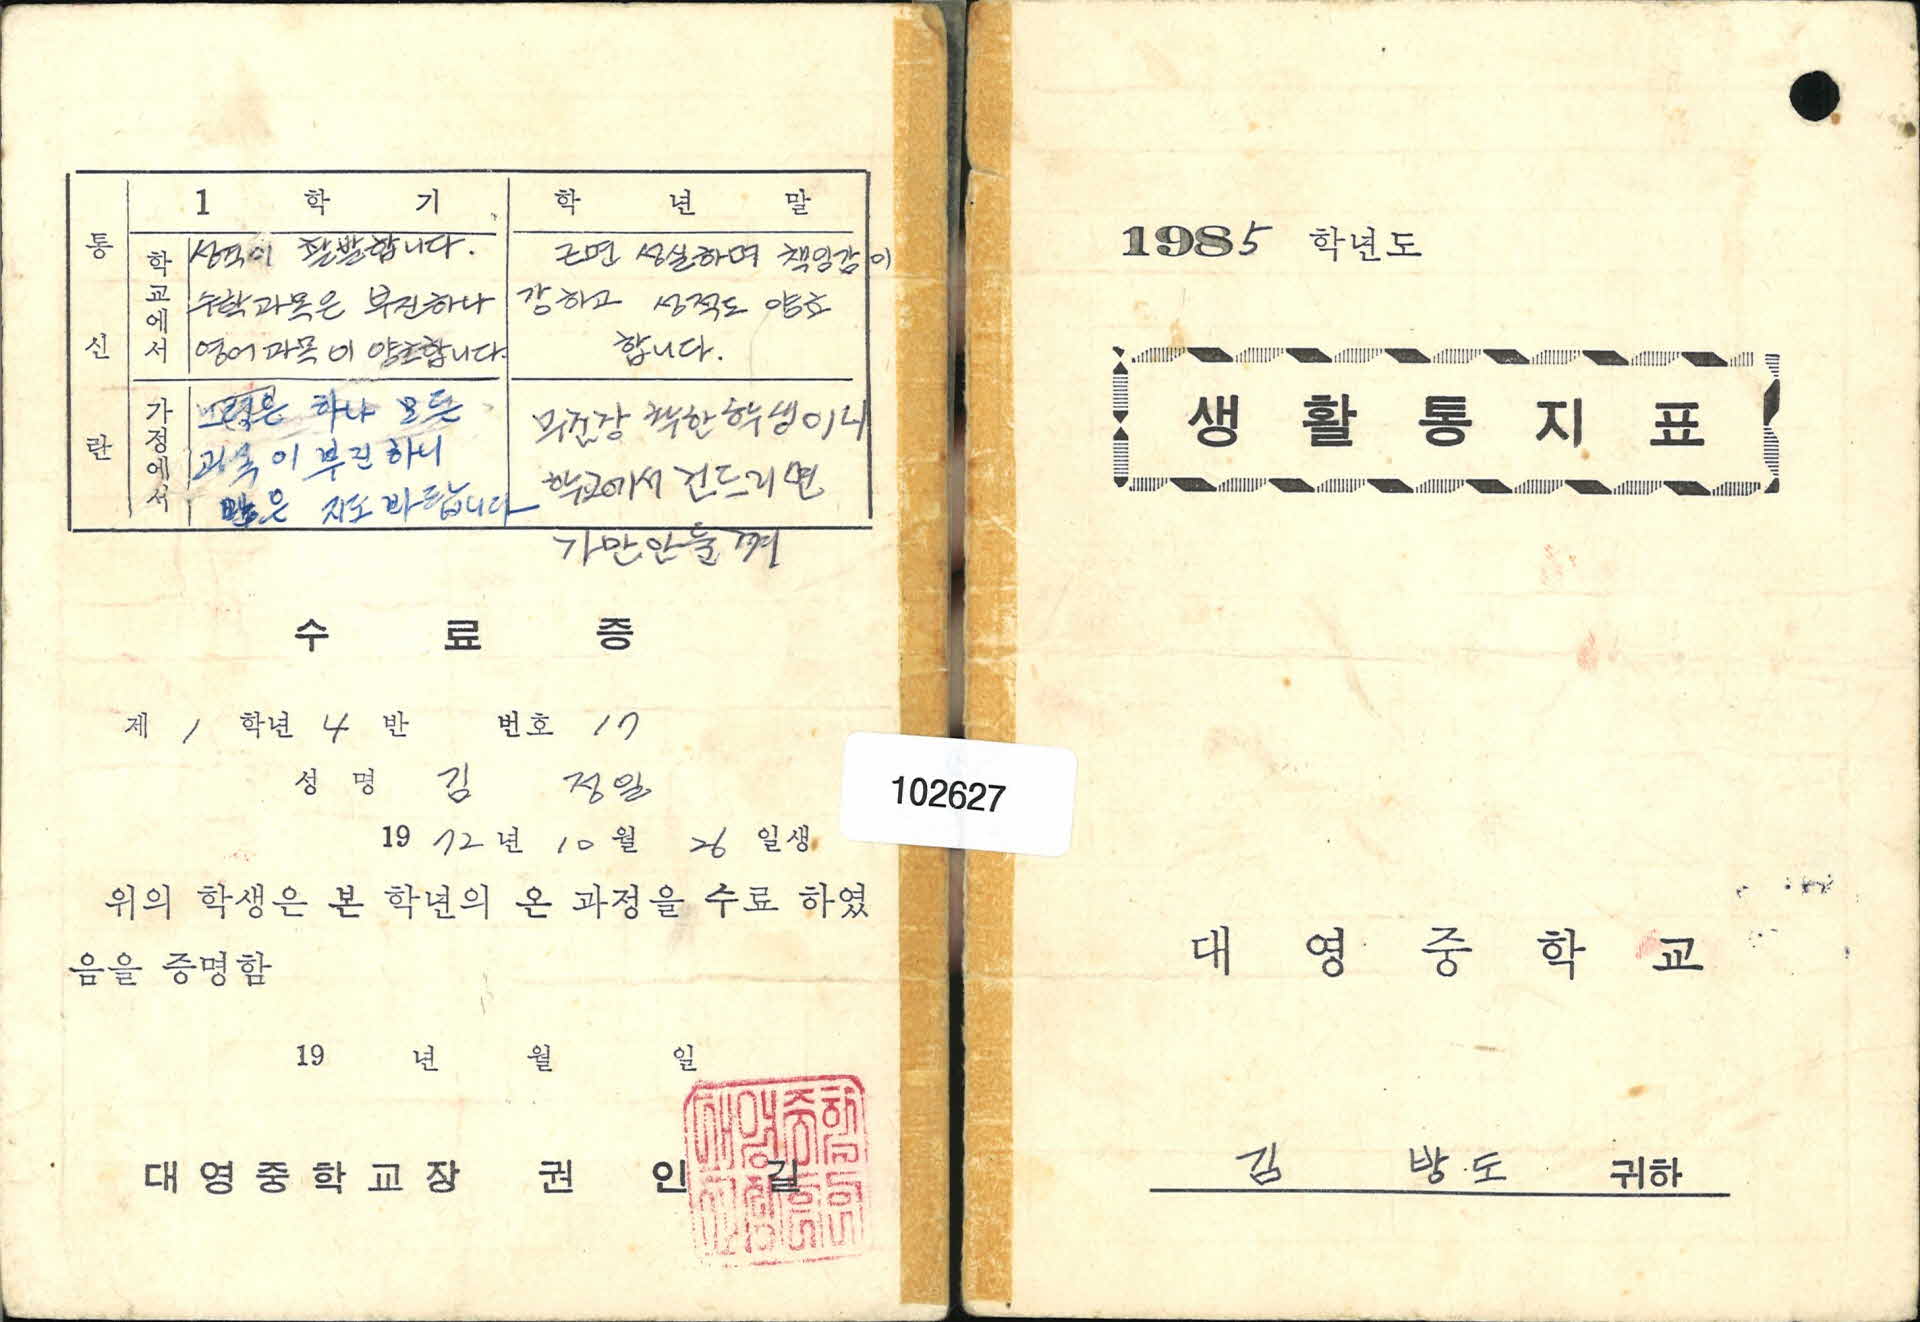 통신란
1 학 기
학 년 말
학교에서
성격이 활발합니다.
수학과목은 부진하나
영어과목이 양호합니다.
근면 성실하며 책임감이
강하고 성적도 양호
합니다.
가정에서
노력은 하나 모든
과목이 부진하니
많은 지도 바랍니다
무진장 착한학생이니
학교에서 건드리면
가만안둘껴
수 료 증
제 1 학년 4 반 번호 17
성 명 김 정일
19 72년 10월 26 일생
위의 학생은 본 학년의 온 과정을 수료 하였
음을 증명함
19 년 월 일
대영중학교장 권 인 길
102627
1985 학년도
생 활 통 지 표
대 영 중 학 교
김 방도 귀하